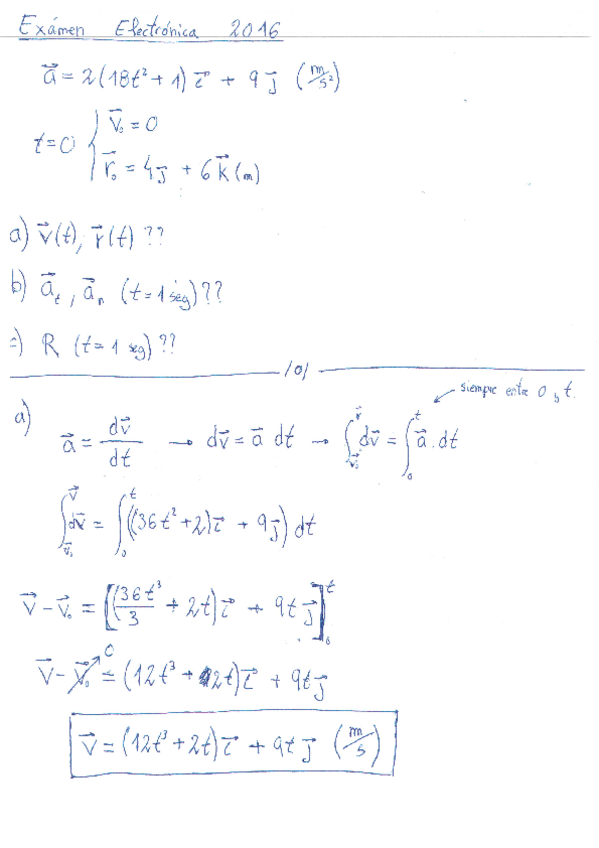 Exámen Electrónica 2016
a⃗ = 2(18t² + 1) i⃗ + 9 j⃗ (m/s²)
t=0 { v⃗₀ = 0
r⃗₀ = 4 j⃗ + 6 k⃗ (m)
a) v⃗(t), r⃗(t) ??
b) a⃗ₜ, a⃗ₙ (t = 1 seg) ??
c) R (t = 1 seg) ??
/o/
siempre entre 0 y t.
a) a⃗ = dv⃗/dt → dv⃗ = a⃗ dt → ∫_v⃗₀^v⃗ dv⃗ = ∫₀^t a⃗ · dt
∫_v⃗₀^v⃗ dv⃗ = ∫₀^t ((36t² + 2) i⃗ + 9 j⃗) dt
v⃗ - v⃗₀ = [(36t³/3 + 2t) i⃗ + 9t j⃗]₀^t
v⃗ - v⃗₀ 0 = (12t³ + 2t) i⃗ + 9t j⃗
v⃗ = (12t³ + 2t) i⃗ + 9t j⃗ (m/s)